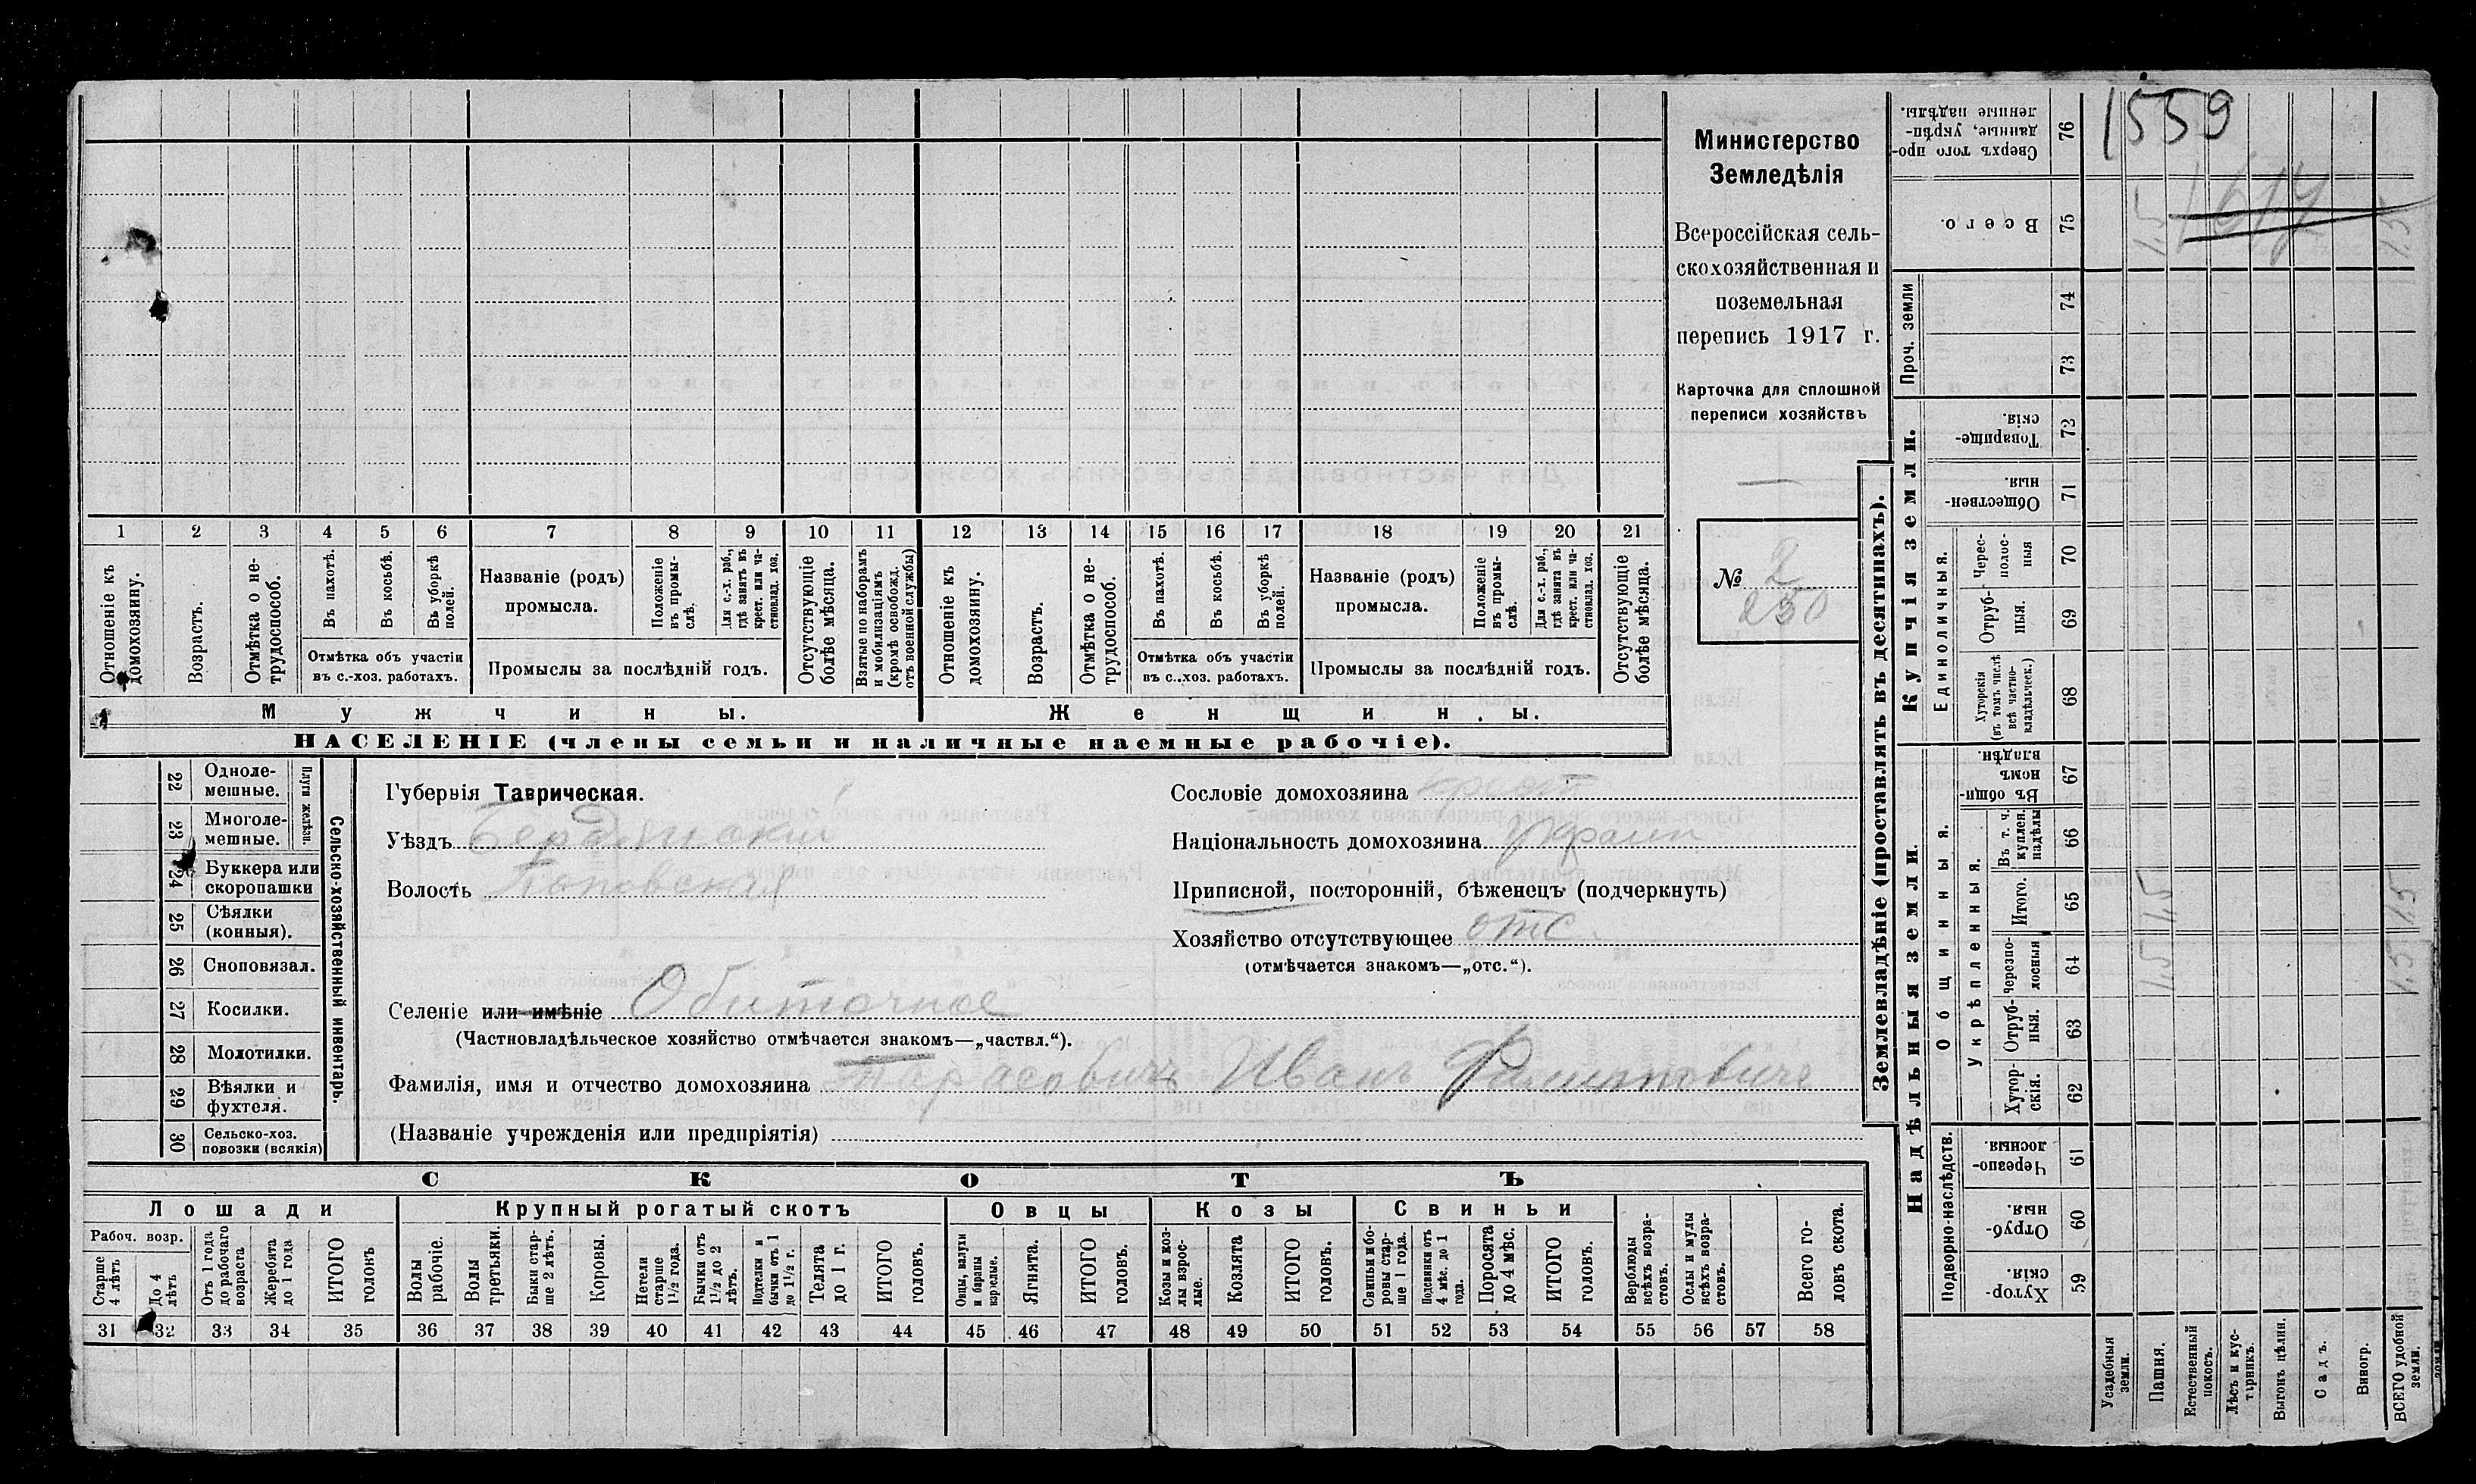 1559
1617
Министерство
Земледѣлія
Всероссійская сель-
скохозяйственная и
поземельная
перепись 1917 г.
Карточка для сплошной
переписи хозяйствъ
№ 2
250
1 2 3 4 5 6 7 8 9 10 11 12 13 14 15 16 17 18 19 20 21
Отношеніе къ домохозяину.
Возрастъ.
Отмѣтка о не-трудоспособ.
Въ пахотѣ.
Въ косьбѣ.
Въ уборкѣ полей.
Отмѣтка объ участіи
въ с.-хоз. работахъ.
Названіе (родъ)
промысла.
Положеніе въ промы-слѣ.
Для с.-х. раб., гдѣ занятъ въ крест. или ча-стновлад. хоз.
Промыслы за послѣдній годъ.
Отсутствующіе болѣе мѣсяца.
Взятые по наборамъ и мобилизаціямъ (кромѣ освобожд. отъ военной службы)
Отношеніе къ домохозяину.
Возрастъ.
Отмѣтка о не-трудоспособ.
Въ пахотѣ.
Въ косьбѣ.
Въ уборкѣ полей.
Отмѣтка объ участіи
въ с..хоз. работахъ.
Названіе (родъ)
промысла.
Положеніе въ промы-слѣ.
Для с.-х. раб., гдѣ занята въ крест. или ча-стновлад. хоз.
Промыслы за послѣдній годъ.
Отсутствующіе болѣе мѣсяца.
Мужчины.
Женщины.
НАСЕЛЕНІЕ (члены семьи и наличные наемные рабочіе).
22 Одноле-мешные.
23 Многоле-мешные.
Плуги желѣзн.
24 Буккера или скоропашки
25 Сѣялки (конныя).
26 Сноповязал.
27 Косилки.
28 Молотилки.
29 Вѣялки и фухтеля.
30 Сельско-хоз. повозки (всякія)
Сельско-хозяйственный инвентарь.
Губернія Таврическая.
Уѣздъ Бердянскій
Волость Поповская
Селеніе или имѣніе Обиточное
(Частновладѣльческое хозяйство отмѣчается знакомъ—„частвл.“).
Фамилія, имя и отчество домохозяина Тарасовичъ Иванъ Филиповичъ
(Названіе учрежденія или предпріятія)
Сословіе домохозяина крест
Національность домохозяина украин
Приписной, посторонній, бѣженецъ (подчеркнуть)
Хозяйство отсутствующее отс.
(отмѣчается знакомъ—„отс.“).
СКОТЪ
Лошади
Крупный рогатый скотъ
Овцы
Козы
Свиньи
Рабоч. возр.
Старше 4 лѣтъ
До 4 лѣтъ
Отъ 1 года до рабочаго возраста
Жеребята до 1 года
ИТОГО головъ
Волы рабочіе.
Волы третьяки.
Быки стар-ше 2 лѣтъ.
Коровы.
Нетели старше 1½ года.
Бычки отъ 1½ до 2 лѣтъ.
Подтелки и бычки отъ 1 до 1½ г.
Телята до 1 г.
ИТОГО головъ.
Овцы, валухи и бараны взрослые.
Ягнята.
ИТОГО головъ.
Козы и коз-лы взрос-лые.
Козлята
ИТОГО головъ.
Свиньи и бо-ровы стар-ше 1 года.
Подсвинки отъ 4 мѣс. до 1 года.
Поросята до 4 мѣс.
ИТОГО головъ.
Верблюды всѣхъ возра-стовъ.
Ослы и мулы всѣхъ возра-стовъ.
Всего го-ловъ скота.
31 32 33 34 35 36 37 38 39 40 41 42 43 44 45 46 47 48 49 50 51 52 53 54 55 56 57 58
Землевладѣніе (проставлять въ десятинахъ).
Купчія земли.
Надѣльныя земли.
Сверхъ того про-данные, укрѣп-ленные надѣлы. 76
Всего. 75 1,5 1,5
Проч. земли 74
73
Товарище-скія. 72
Обществен-ныя. 71
Единоличныя.
Черес-полос-ныя 70
Отруб-ныя. 69
Хуторскія (въ томъ числѣ всѣ частно-владѣльческ.) 68
Общинныя.
Въ общи-номъ владѣн. 67
Укрѣпленныя.
Въ т. ч. куплен. надѣлы 66
Итого. 65 1,5 1,5
Черезпо-лосныя 64 1,5 1,5
Отруб-ныя. 63
Хутор-скія. 62
Подворно-наслѣдств.
Черезпо-лосныя 61
Отруб-ныя 60
Хутор-скія. 59
Усадебныя земли.
Пашня.
Естественный покосъ.
Лѣсъ и кус-тарникъ.
Выгонъ цѣлин.
Садъ.
Виногр.
ВСЕГО удобной земли.